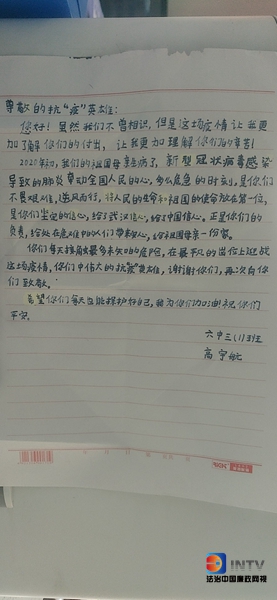 尊敬的抗“疫”英雄:
您好!虽然我们不曾相识,但是这场疫情让我更
加了解你们的付出,让我更加理解你们的辛苦!
2020年初,我们的祖国母亲生病了,新型冠状病毒感染
导致的肺炎牵动全国人民的心,多么危急的时刻,是你们
不畏艰难,逆风而行,将人民的生命和祖国的使命放在第一位,
是你们坚定的信心,给了武汉信心,给了中国信心。正是你们的
负责,给处在危难中的人们带来安心,给祖国母亲一份
你们每天接触最多未知的危险,在最平凡的岗位上迎战
这场疫情,你们中伟大的抗“疫”英雄,谢谢你们,再次向你
们致敬。
希望你们每天也能保护好自己,我为你们加油祝你们
平安
六中三(1)3班
高宇
INTV
法治中国廉政网视